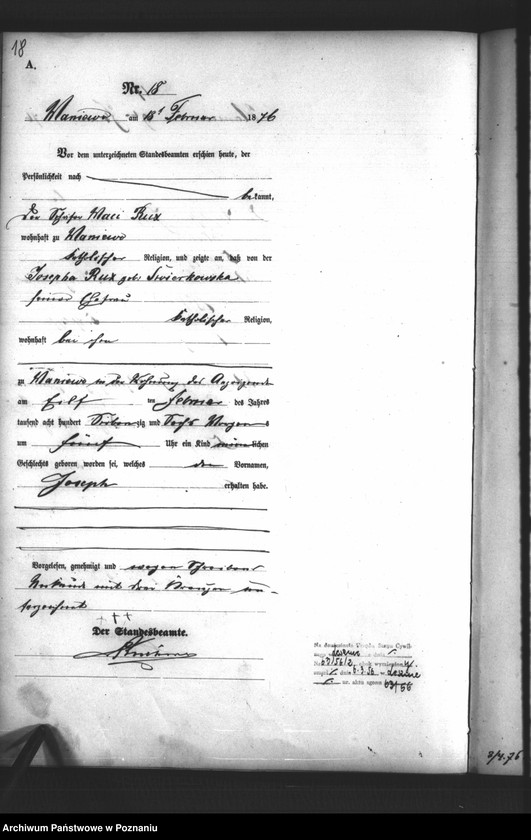 18
A.
Nr. 18
Waniewo am 18t Februar 1876
Vor dem unterzeichneten Standesbeamten erschien heute, der
Persönlichkeit nach
bekannt,
der Schäfer Rux
wohnhaft zu Waniewo
katholischer Religion, und zeigte an, daß von der
Josepha Rux geb.
seiner Ehefrau
katholischer Religion,
wohnhaft bei ihm
zu Waniewo in der Wohnung des
am Elf ten Februar des Jahres
tausend acht hundert Siebenzig und Sechs Morgens
um fünf Uhr ein Kind männlichen
Geschlechts geboren worden sei, welches den Vornamen,
Joseph erhalten habe.
Vorgelesen, genehmigt und wegen Schreibens
Unkunde mit drei Kreuzen un-
terzeichnet
+ + +
Der Standesbeamte.
Na Urzędu Stanu Cywil-
dnia
Nr 67/56/2
dnia 6.3.56
nr. aktu zgonu 63/56
3/4.76
Archiwum Państwowe w Poznaniu